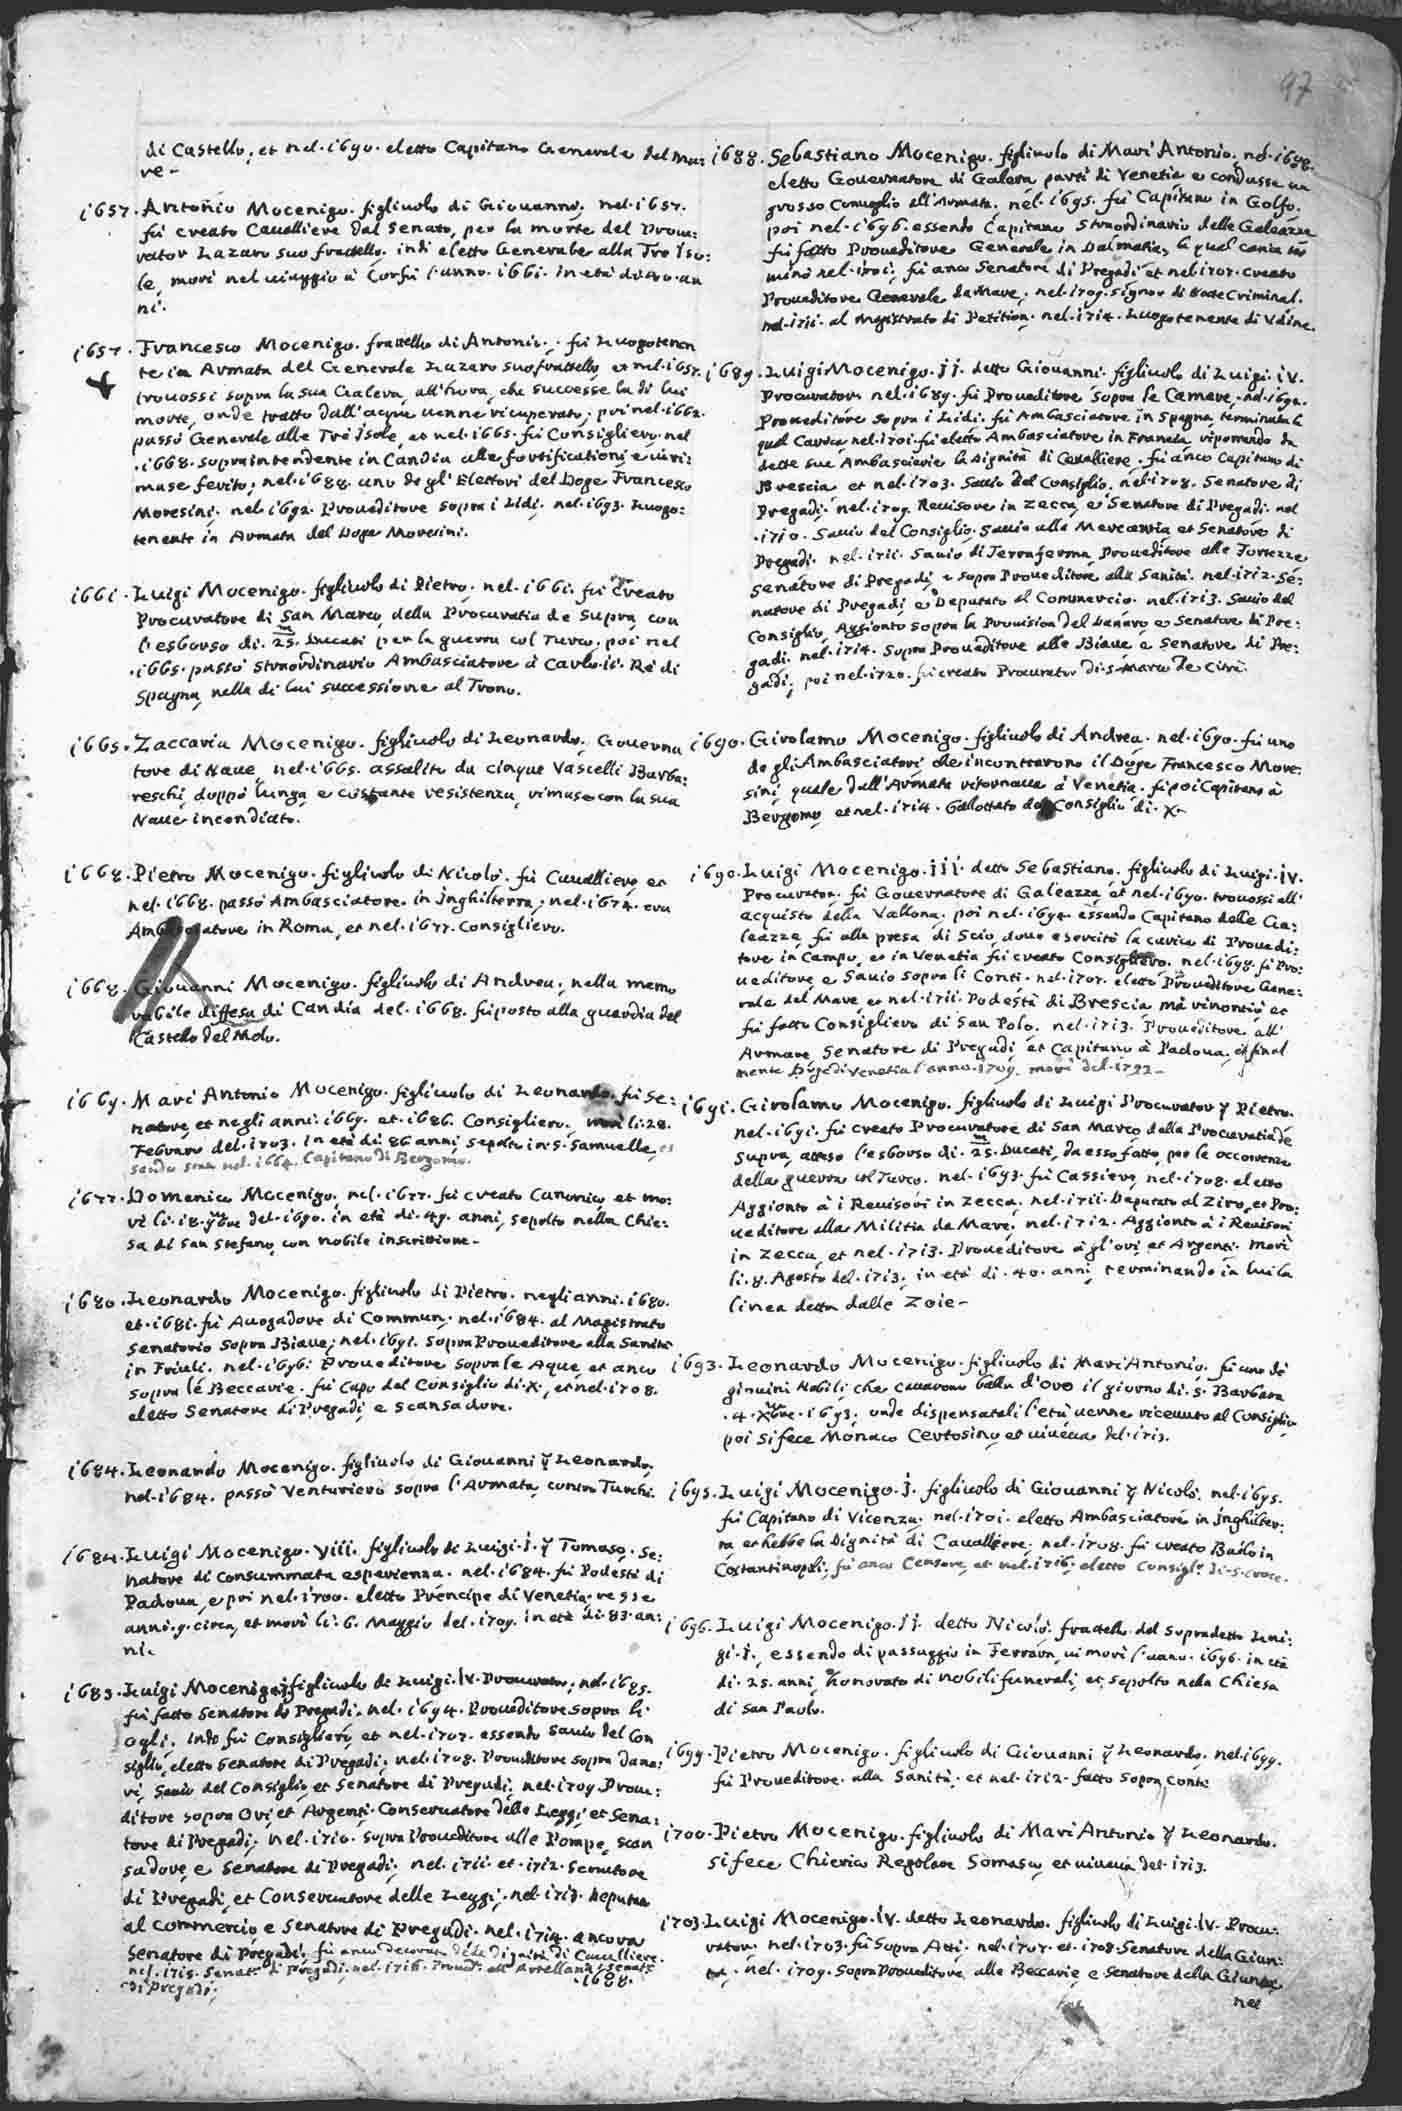 97
di Castello, et nel. 1690. eletto Capitano Generale del Ma:
re-
1657. Antonio Mocenigo. figliuolo di Giouanni. nel. 1657.
fù creato Caualliere dal Senato, per la morte del Procu:
rator Lazaro suo fratello. indi eletto Generale alle Tre Iso:
le, morì nel uiaggio à Corfù l'anno. 1661. in età di an
ni.
1657. Francesco Mocenigo. fratello di Antonio. fù Luogotenen
te in Armata del Generale Lazaro suo fratello, et nel. 1657.
trouossi sopra la sua Galera, all'hora, che successe la di lui
morte, onde tratto dall'acqua uenne ricuperato, poi nel. 1662.
passò Generale alle Trè Isole, et nel. 1665. fù Consigliero. nel
.1668. sopraintendente in Candia alle fortificationi, e ui ri:
mase ferito, nel. 1688. uno de gl'Elettori del Doge Francesco
Moresini. nel. 1692. Proueditore sopra i Lidi. nel. 1693. Luogo:
tenente in Armata del Doge Moresini.
1661. Luigi Mocenigo. figliuolo di Pietro. nel. 1661. fù creato
Procuratore di San Marco della Procuratia de Supra, con
l'esborso di. 25. Ducati per la guerra col Turco, poi nel
.1665. passò straordinario Ambasciatore à Carlo. ii. Rè di
Spagna, nella di lui successione al Trono.
1665. Zaccaria Mocenigo. figliuolo di Leonardo, Gouerna
tore di Naue, nel. 1665. assalito da cinque Vascelli Barba:
reschi, doppò lunga e costante resistenza, rimase con la sua
Naue incendiato.
1668. Pietro Mocenigo. figliuolo di Nicolò. fù Caualliero, et
nel. 1668. passò Ambasciatore in Inghilterra, nel. 1674. era
Ambasciatore in Roma, et nel. 1677. Consigliero.
1668. Giouanni Mocenigo. figliuolo di Andrea, nella memo
rabile diffesa di Candia del. 1668. fù posto alla guardia del
Castello del Molo.
1669. Marc'Antonio Mocenigo. figliuolo di Leonardo. fù Se:
natore, et negli anni. 1669. et. 1686. Consigliero. morì li. 28.
Febraro del. 1703. in età di. 86 anni, sepolto in S. Samuelle, es
sendo stato nel. 1664. Capitano di Bergomo.
1677. Domenico Mocenigo, nel. 1677. fù creato Canonico, et mo:
rì li. 18. 9bre del. 1690. in età di. 49. anni, sepolto nella Chie:
sa di San Stefano, con nobile inscrittione-
1680. Leonardo Mocenigo. figliuolo di Pietro. negli anni. 1680.
et. 1681. fù Auogadore di Commun, nel. 1684. al Magistrato
senatorio sopra Biaue, nel. 1691. sopra Proueditore alla Sanità
in Friuli. nel. 1696. Proueditore sopra le Aque, et anco
sopra le Beccarie. fù Capo del Consiglio di. X., et nel. 1708.
eletto Senatore di Pregadi, e scansadore.
1684. Leonardo Mocenigo. figliuolo di Giouanni q Leonardo.
nel. 1684. passò Venturiero sopra l'Armata, contro Turchi.
1684. Luigi Mocenigo. VIII. figliuolo di Luigi. i. q Tomaso. Se:
natore di consummata esperienza. nel. 1684. fù Podestà di
Padoua, e poi nel. 1700. eletto Prencipe di Venetia, resse
anni. 9. circa, et morì li. 6. Maggio del. 1709. in età di. 83. an:
ni.
1685. Luigi Mocenigo figliuolo di Luigi. IV. Procurator, nel. 1685.
fù fatto Senatore de Pregadi. nel. 1694. Proueditore sopra li
Ogli. indi fù Consigliero, et nel. 1707. essendo Sauio del Con
siglio, eletto Senatore di Pregadi, nel. 1708. Proueditore sopra dana:
ri, Sauio del Consiglio, et Senatore di Pregadi, nel. 1709. Proue:
ditore sopra Ori, et Argenti. Conseruatore delle Leggi, et Sena:
tore di Pregadi, nel. 1710. sopra Proueditore alle Pompe, scan
sadore, e Senatore di Pregadi, nel. 1711. et. 1712. Senatore
di Pregadi, et Conseruatore delle Leggi. nel. 1713. deputato
al commercio, e Senatore di Pregadi. nel. 1714. ancora
Senatore di Pregadi. fù anco decorato della dignità di Caualliere.
nel. 1715. Senat.r di Pregadi. nel. 1716. Proued.r all'Artellaria, Senat.r
di Pregadi,
.1688.
1688. Sebastiano Mocenigo. figliuolo di Marc'Antonio, nel. 1688.
eletto Gouernatore di Galera partì di Venetia e condusse un
grosso Conuoglio all'Armata. nel. 1695. fù Capitano in Golfo.
poi nel. 1696. essendo Capitano Straordinario delle Galeazze
fù fatto Proueditore Generale in Dalmatia, la qual carica ter
minò nel. 1701. fù anco Senatore di Pregadi et nel. 1707. creato
Proueditore Generale da Mare. nel. 1709. signor di Notte Criminal.
nel. 1711. al Magistrato di Petition. nel. 1714. Luogotenente di Vdine.
1689. Luigi Mocenigo. ii. detto Giouanni. figliuolo di Luigi. iv.
Procurator. nel. 1689. fù Proueditore sopra le Camere. nel. 1692.
Proueditore sopra i Lidi. fù Ambasciatore in Spagna, terminata la
qual Carica, nel. 1701. fù eletto Ambasciatore in Francia, riportando da
dette sue Ambasciarie la Dignità di Caualliere. fù anco Capitano di
Brescia et nel. 1703. Sauio del Consiglio. nel. 1708. Senatore di
Pregadi. nel. 1709. Reuisore in Zecca, e Senatore di Pregadi. nel
.1710. Sauio del Consiglio. Sauio alla Mercantia et Senatore di
Pregadi. nel. 1711. Sauio di Terraferma, Proueditore alle Fortezze
Senatore di Pregadi, e sopra Proueditore alla Sanità. nel. 1712. Se:
natore di Pregadi, e Deputato al Commercio. nel. 1713. Sauio del
Consiglio, Aggionto sopra la Prouision del Danaro, e Senatore di Pre:
gadi. nel. 1714. sopra Proueditore alle Biaue, e Senatore di Pre:
gadi, poi nel. 1720. fù creato Procurator di S. Marco de Citrà.
1690. Girolamo Mocenigo. figliuolo di Andrea. nel. 1690. fù uno
de gli Ambasciatori che incontrarono il Doge Francesco More:
sini, quale dall'Armata ritornaua à Venetia. fù poi Capitano à
Bergomo, et nel. 1714. ballottato del Consiglio di. X.
1690. Luigi Mocenigo. iii. detto Sebastiano. figliuolo di Luigi. iv.
Procurator. fù Gouernatore di Galeazza, et nel. 1690. trouossi all'
acquisto della Vallona, poi nel. 1694. essendo Capitano delle Ga:
leazze, fù alla presa di Scio, doue esercitò la carica di Prouedi:
tore in Campo, e in Venetia fù creato Consigliero. nel. 1698. fù Pro:
ueditore e Sauio sopra li Conti. nel. 1707. eletto Proueditore Gene:
rale del Mare, e nel. 1711. Podestà di Brescia, mà rinontiò et
fù fatto Consigliero di San Polo. nel. 1713. Proueditore all'
Armare, Senatore di Pregadi, et Capitano à Padoua, et final
mente Doge di Venetia l'anno. 1709. morì del. 1722-
1691. Girolamo Mocenigo. figliuolo di Luigi Procurator q Pietro.
nel. 1691. fù creato Procuratore di San Marco della Procuratia de
Supra, atteso l'esborso di. 25. Ducati, da esso fatto, per le occorrenze
della guerra col Turco. nel. 1693. fù Cassiero, nel. 1708. eletto
Aggionto à i Reuisori in Zecca, nel. 1711. Deputato al Ziro, et Pro:
ueditore alla Militia da Mare, nel. 1712. Aggionto à i Reuisori
in Zecca, et nel. 1713. Proueditore à gl'ori, et Argenti. morì
li. 8. Agosto del. 1713. in età di. 40. anni, terminando in lui la
linea detta dalle Zoie-
1693. Leonardo Mocenigo. figliuolo di Marc'Antonio, fù uno de
giouini Nobili che cauarono balla d'oro il giorno di. S. Barbara
.4. Xbre. 1693. onde dispensatali l'età uenne riceuuto al Consiglio,
poi si fece Monaco Certosino, et uiueua del. 1713.
1695. Luigi Mocenigo. i. figliuolo di Giouanni q Nicolò. nel. 1695.
fù Capitano di Vicenza. nel. 1701. eletto Ambasciatore in Inghilter:
ra et hebbe la Dignità di Caualliere. nel. 1708. fù creato Bailo in
Costantinopoli, fù anco Censore, et nel. 1716. eletto Consigl.r di S. Croce.
1696. Luigi Mocenigo. ii. detto Nicolò. fratello del sopradetto Lui:
gi. i., essendo di passaggio in Ferrara, ui morì l'anno. 1696. in età
di. 25. anni, honorato di nobili funerali, et sepolto nella Chiesa
di San Paolo.
1699. Pietro Mocenigo. figliuolo di Giouanni q Leonardo. nel. 1699.
fù Proueditore alla Sanità. et nel. 1712. fatto sopra conti
1700. Pietro Mocenigo. figliuolo di Marc'Antonio q Leonardo.
si fece Chierico Regolare Somasco, et uiueua del. 1713.
1703. Luigi Mocenigo. IV. detto Leonardo. figliuolo di Luigi. IV. Procu:
rator. nel. 1703. fù Sopra Atti, nel. 1707. et. 1708. Senatore della Giun:
ta. nel. 1709. sopra Proueditore alle Beccarie, e Senatore della Giunta,
nel